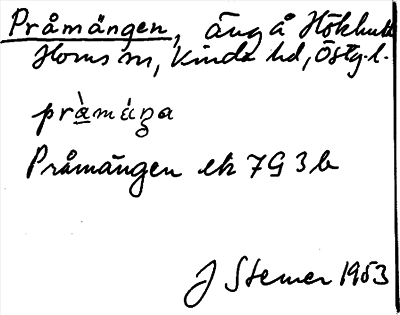 Pråmängen, äng å Hökhult
Horns sn, Kinda hd, Östg. l.
pràmáŋa
Pråmängen ek 7G 3b
J Stemer 1953